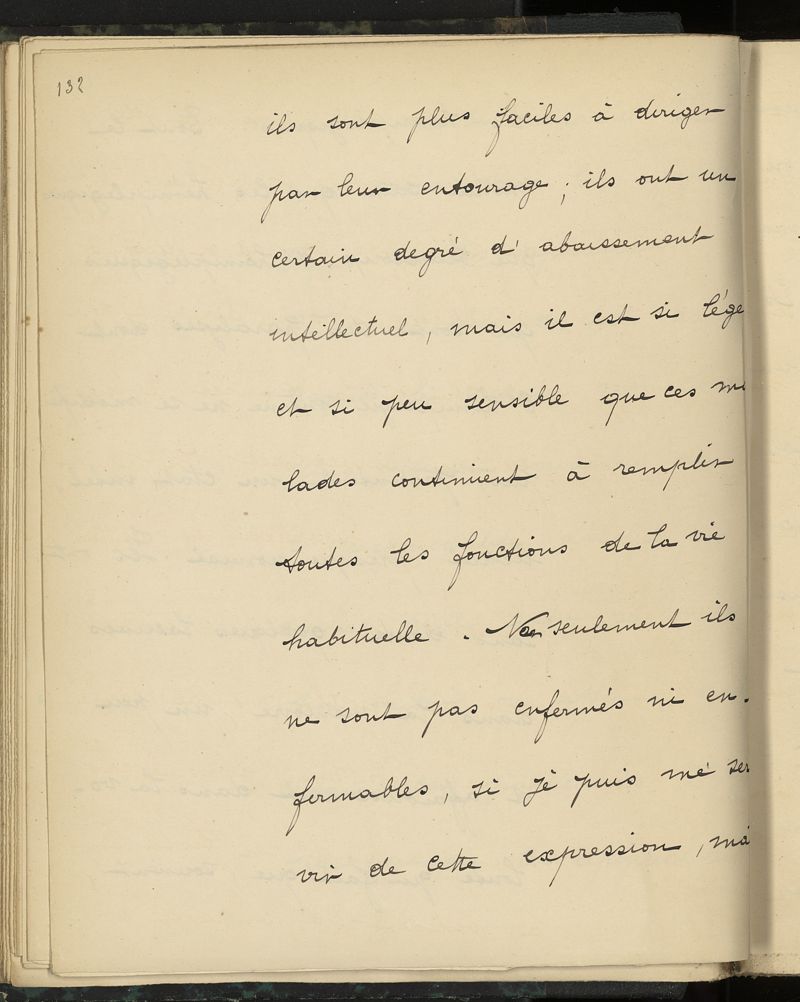 132
ils sont plus faciles à diriger
par leur entourage ; ils ont un
certain degré d'abaissement
intellectuel, mais il est si lége
et si peu sensible que ces m
lades continuent à remplir
toutes les fonctions de la vie
habituelle. Non seulement ils
ne sont pas enfermés ni en-
fermables, si je puis me ser
vir de cette expression, ma